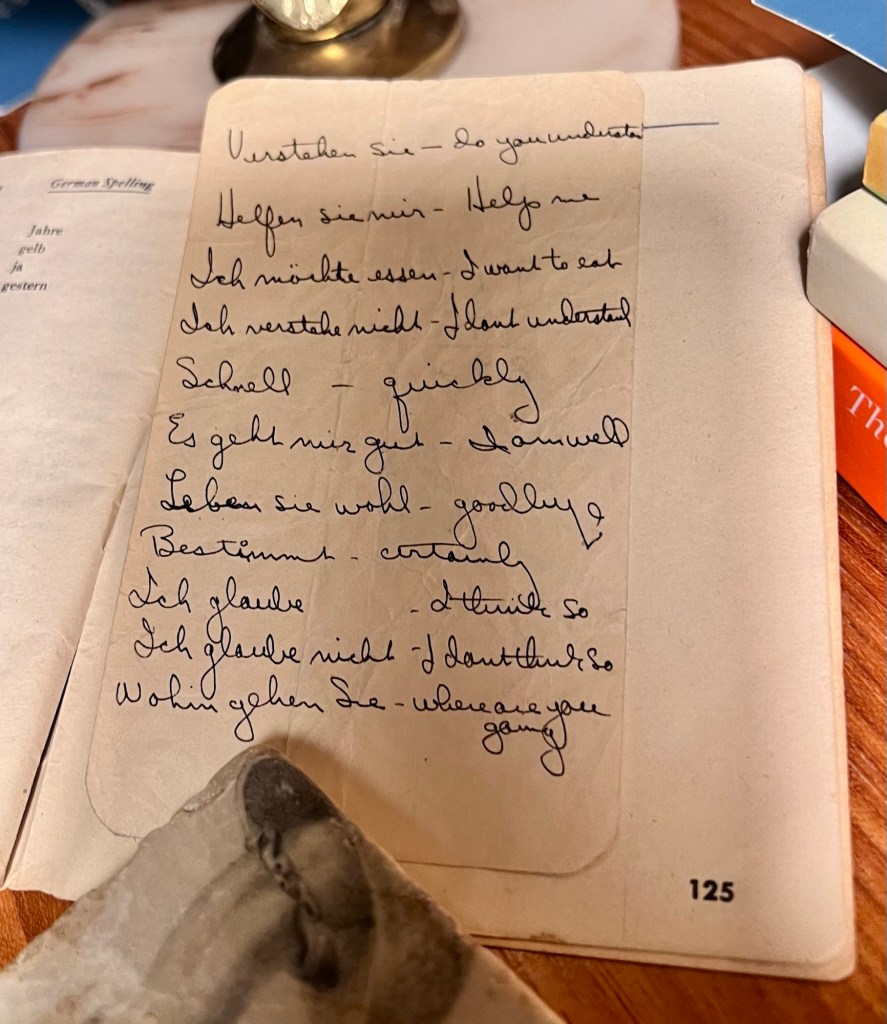 German Spelling
Jahre
gelb
ja
gestern
Verstehen sie – do you understa
Helfen sie mir – Help me
Ich möchte essen – I want to eat
Ich verstehe nicht – I dont understand
Schnell – quickly
Es geht mir gut – I am well
Leben sie wohl – goodbye
Bestimmt – certainly
Ich glaube – I think so
Ich glaube nicht – I dont think so
Wohin gehen Sie – where are you
going
125
Th